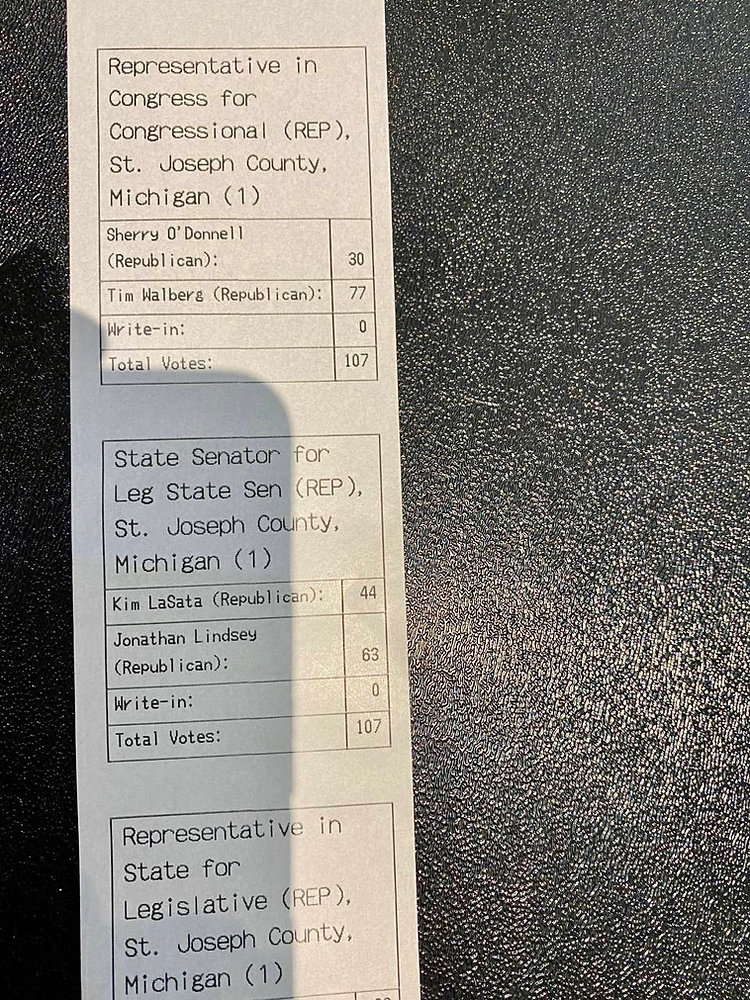 Representative in
Congress for
Congressional (REP),
St. Joseph County,
Michigan (1)
Sherry O'Donnell
(Republican): 30
Tim Walberg (Republican): 77
Write-in: 0
Total Votes: 107
State Senator for
Leg State Sen (REP),
St. Joseph County,
Michigan (1)
Kim LaSata (Republican): 44
Jonathan Lindsey
(Republican): 63
Write-in: 0
Total Votes: 107
Representative in
State for
Legislative (REP),
St. Joseph County,
Michigan (1)